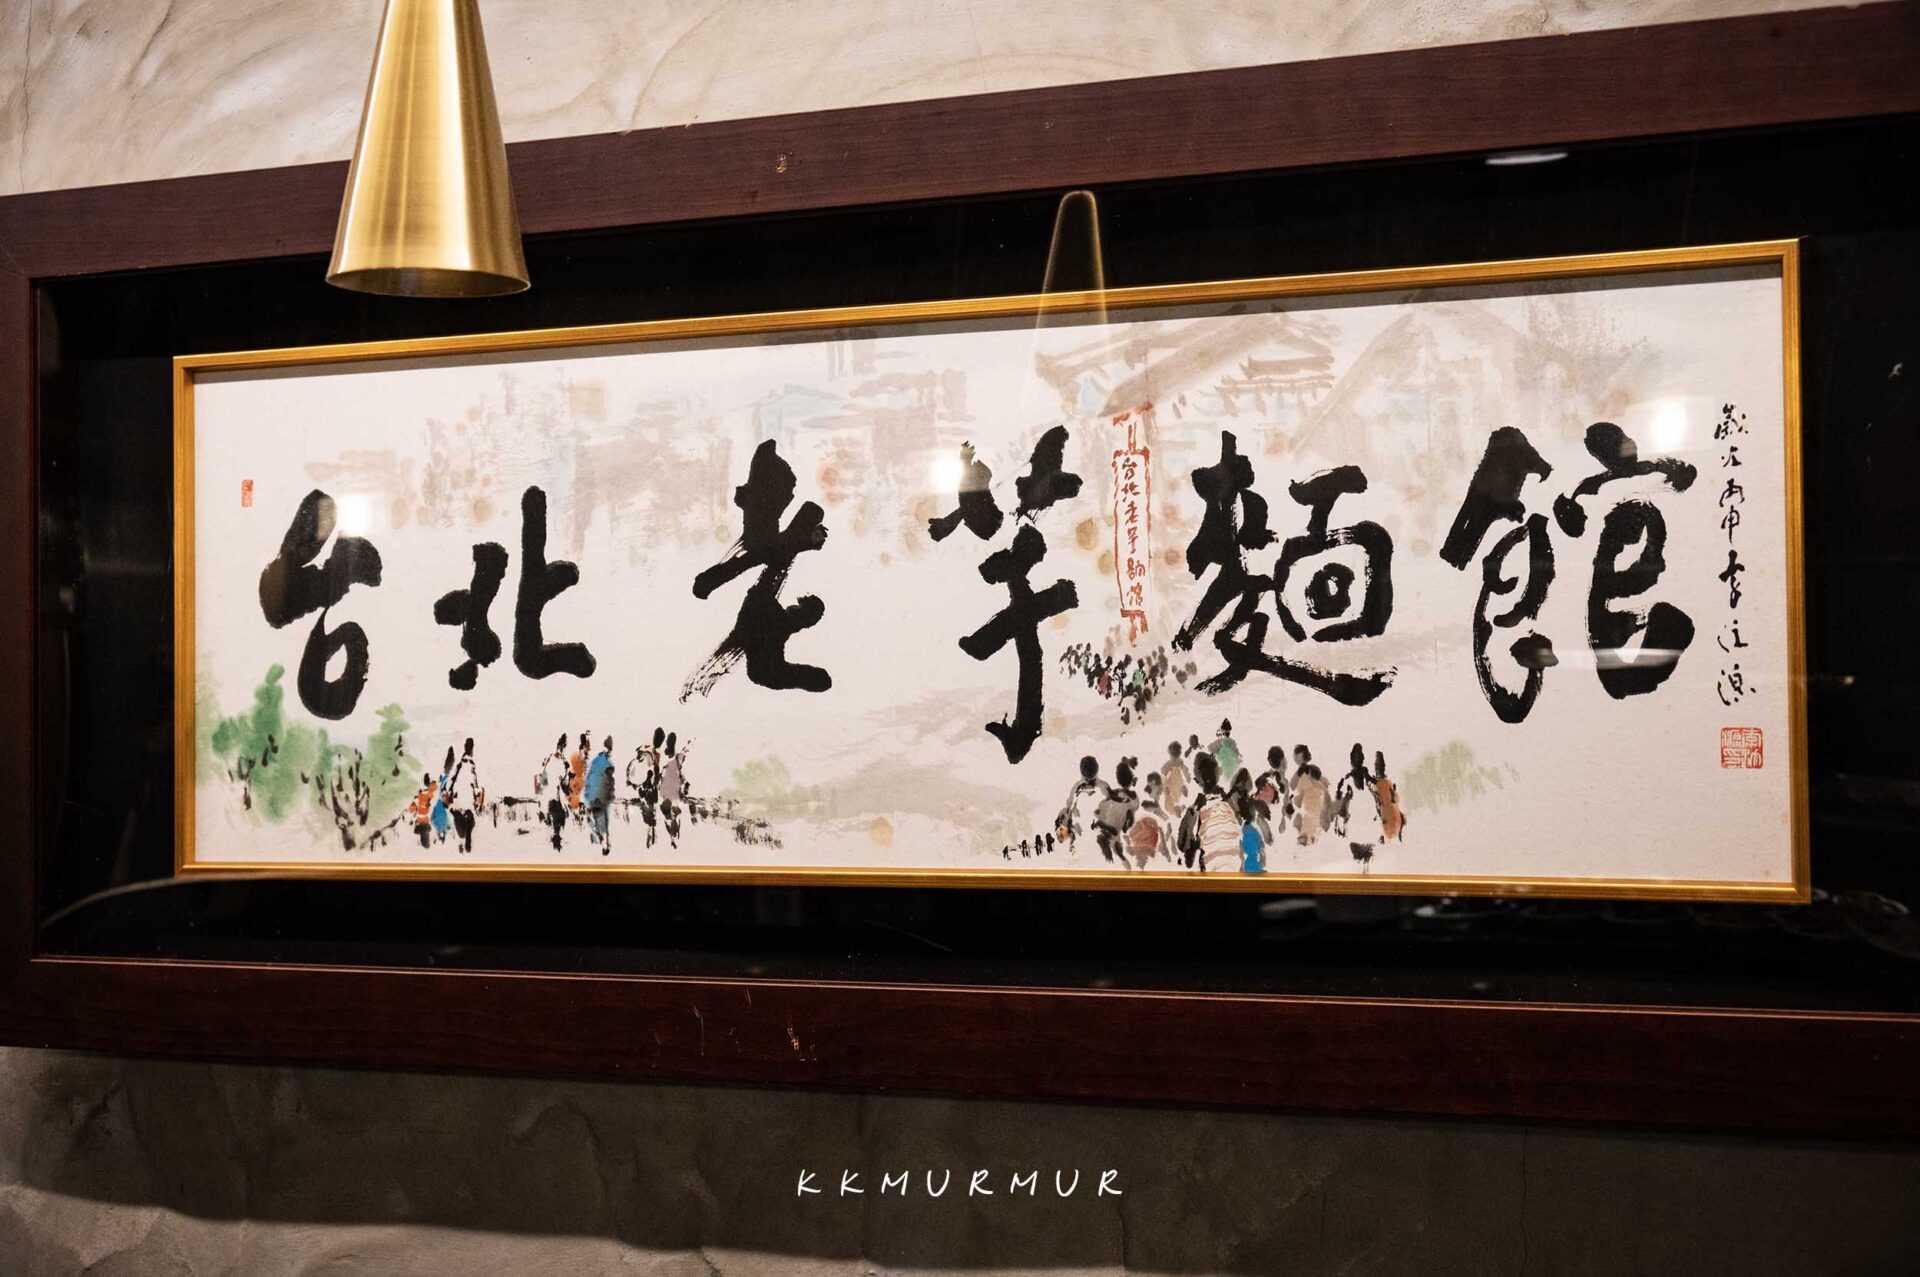 台北老芋麵館
台北老芋麵館
歲次丙申
KKMURMUR